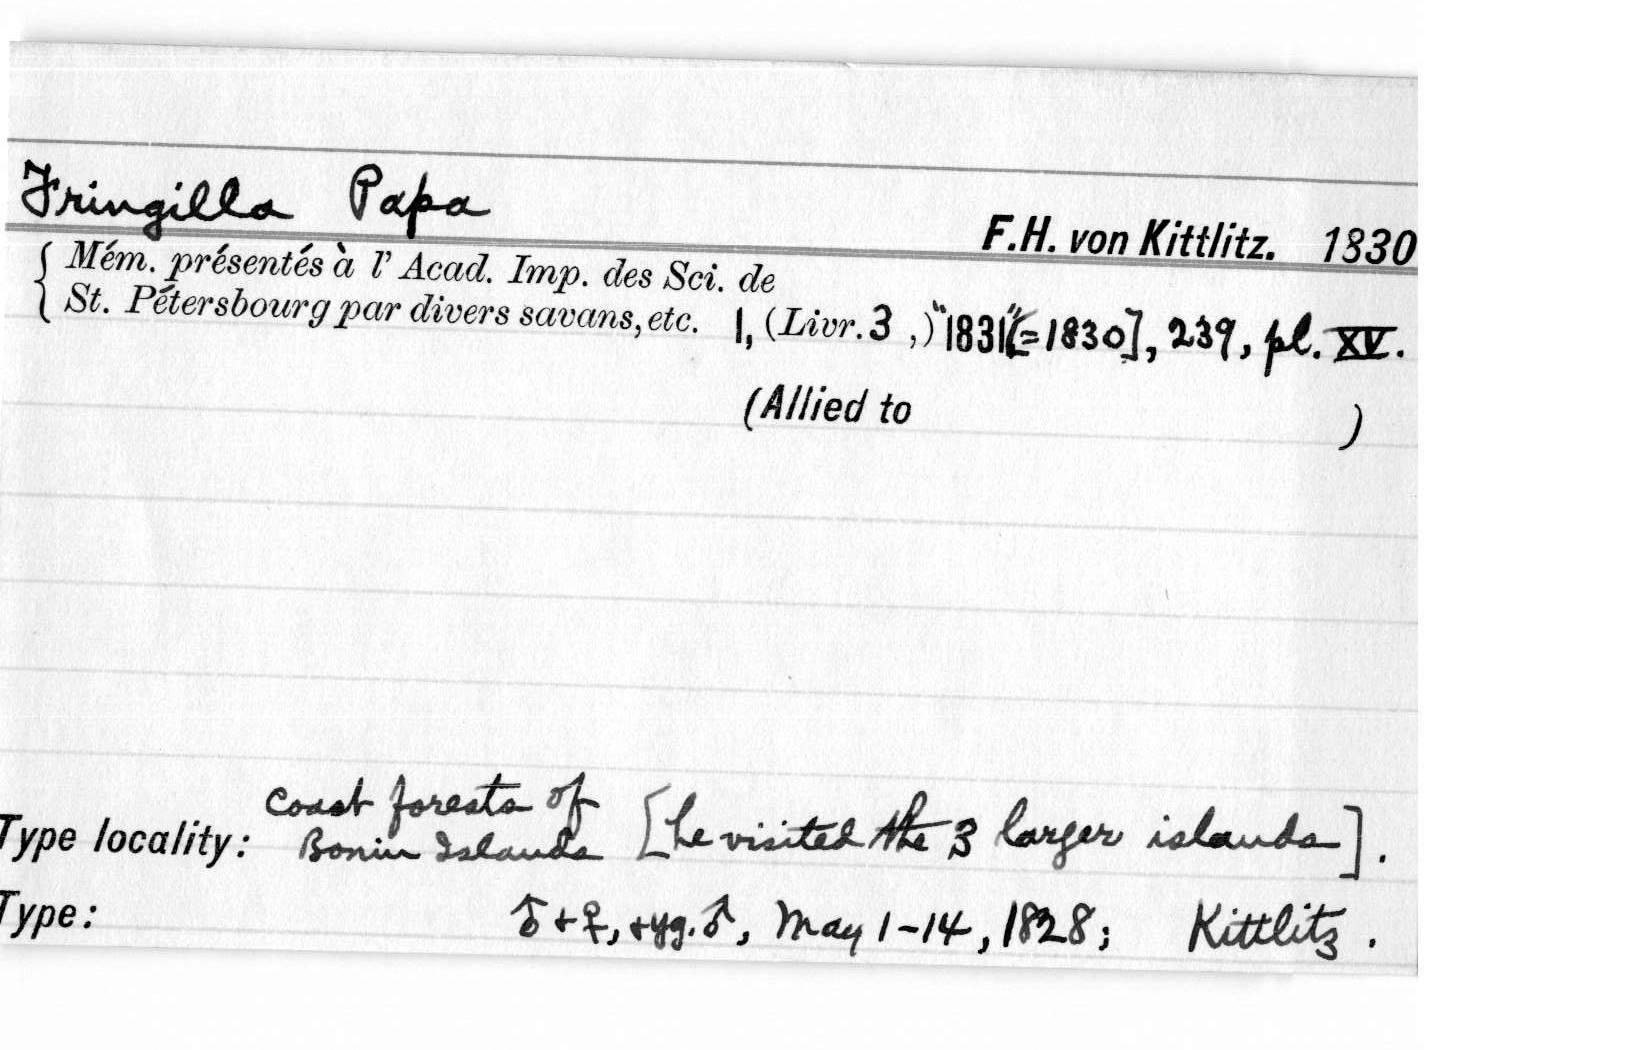 Fringilla Papa
F.H. von Kittlitz. 1830
{ Mém. présentés à l' Acad. Imp. des Sci. de
St. Pétersbourg par divers savans, etc. 1, (Livr. 3 ,) "1831" [=1830], 239, pl. XV.
(Allied to )
coast forests of
Type locality: Bonin Islands [he visited the 3 larger islands].
Type: ♂ + ♀, + yg. ♂, May 1-14, 1828; Kittlitz.